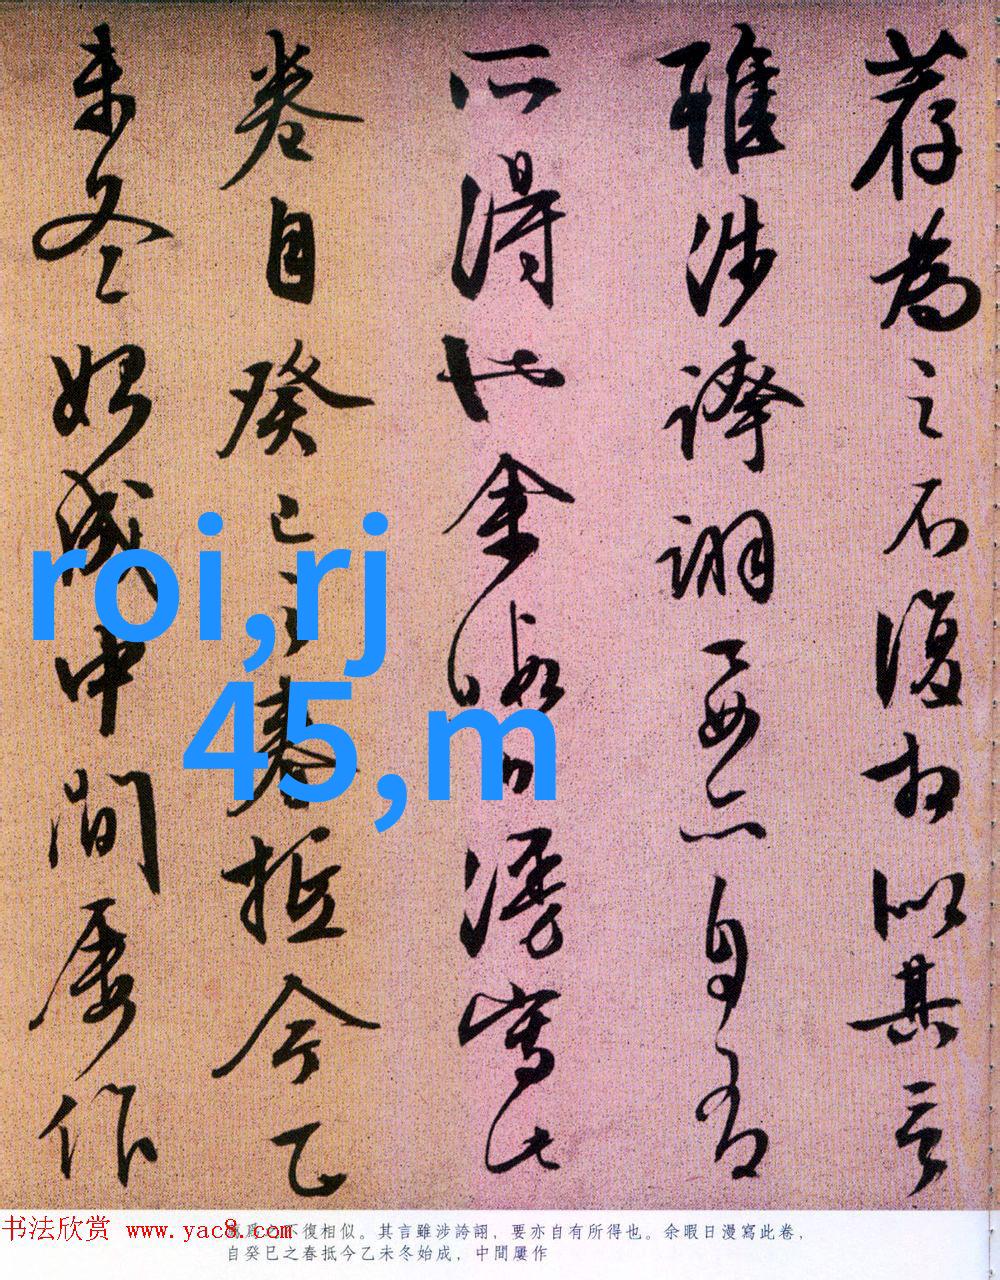 荐為之不復相似其言
雖涉誇詡要亦自有
所得也余暇日漫寫此
卷自癸巳之春抵今乙
未冬始成中間屢作
roi,rj
45,m
书法欣赏 www.yac8.com
為之不復相似。其言雖涉誇詡，要亦自有所得也。余暇日漫寫此卷，
自癸巳之春抵今乙未冬始成，中間屢作